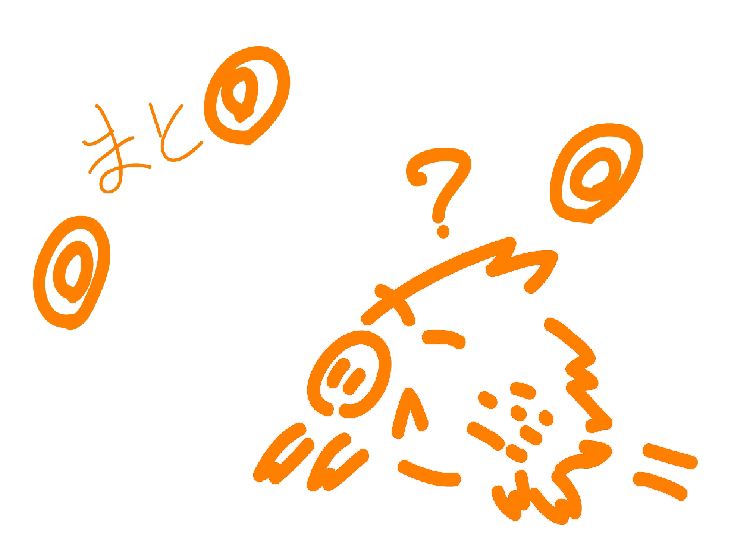 まと
?